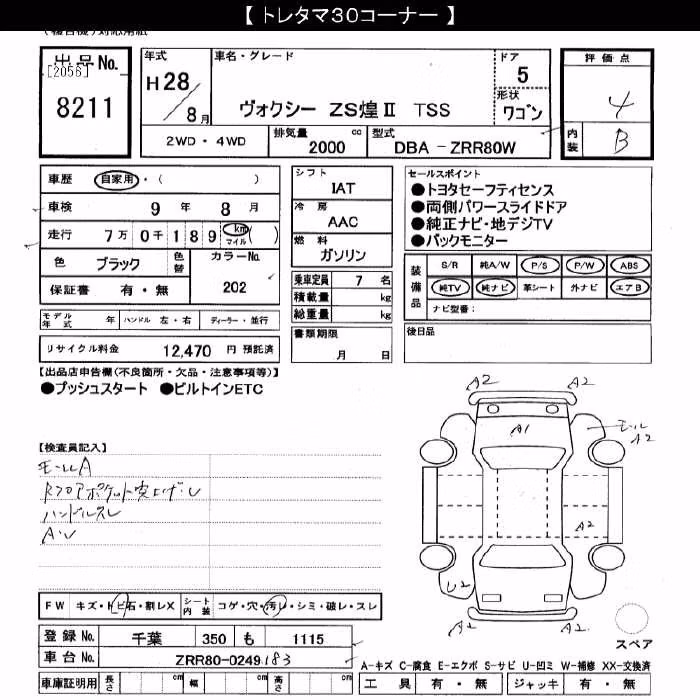 【 トレタマ30コーナー 】
(複合機)対応用紙
出品No.
[2056]
8211
年式
H28/8月
車名・グレード
ヴォクシー ZS煌Ⅱ TSS
ドア
5
形状
ワゴン
評価点
4
内装
B
2WD・4WD
排気量
2000 cc
型式
DBA-ZRR80W
車歴 自家用・( )
車検 9 年 8 月
走行 7万0千189 km マイル ( )
色 ブラック 色替 カラーNo.
保証書 有・無 202
モデル年式 年 ハンドル 左・右 ディーラー・並行
リサイクル料金 12,470 円 預託済
シフト
IAT
冷房
AAC
燃料
ガソリン
乗車定員 7 名
積載量 kg
総重量 kg
書類期限
月 日
セールスポイント
●トヨタセーフティセンス
●両側パワースライドドア
●純正ナビ・地デジTV
●バックモニター
装備品
S/R 純A/W P/S P/W ABS
純TV 純ナビ 革シート 外ナビ エアB
ナビ型番:
後日品
【出品店申告欄(不良箇所・欠品・注意事項等)】
●プッシュスタート ●ビルトインETC
【検査員記入】
モールA
ハンドルスレ
A2 A2
A1
モール
A2
A2
A2 A2
スペア
FW キズ・トビ石・割レX シート内装 コゲ・穴・汚レ・シミ・破レ・スレ
登録No. 千葉 350 も 1115
車台No. ZRR80-0249183
車庫証明用 長さ cm 幅 cm 高さ cm
A-キズ C-腐食 E-エクボ S-サビ U-凹ミ W-補修 XX-交換済
工具 有・無 ジャッキ 有・無